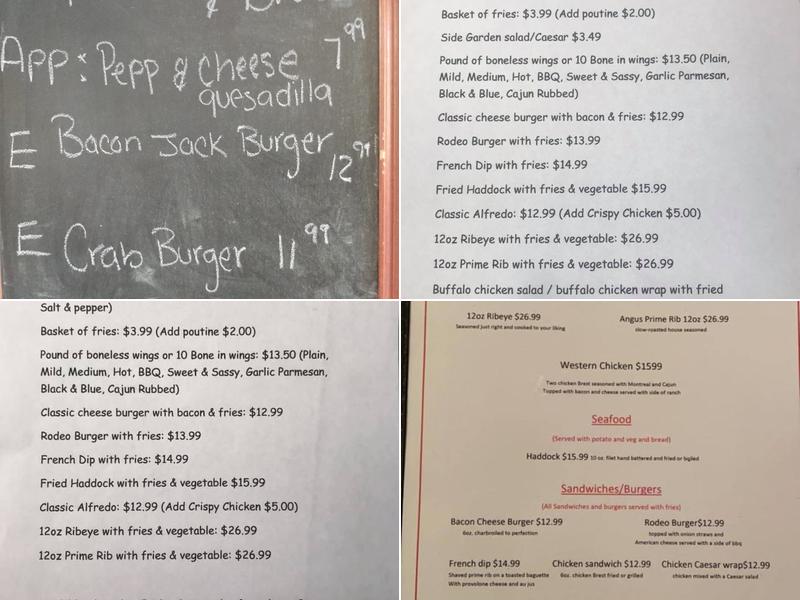 App: Pepp & Cheese 7.99
quesadilla
E Bacon Jack Burger 12.99
E Crab Burger 11.99
Basket of fries: $3.99 (Add poutine $2.00)
Side Garden salad/Caesar $3.49
Pound of boneless wings or 10 Bone in wings: $13.50 (Plain,
Mild, Medium, Hot, BBQ, Sweet & Sassy, Garlic Parmesan,
Black & Blue, Cajun Rubbed)
Classic cheese burger with bacon & fries: $12.99
Rodeo Burger with fries: $13.99
French Dip with fries: $14.99
Fried Haddock with fries & vegetable $15.99
Classic Alfredo: $12.99 (Add Crispy Chicken $5.00)
12oz Ribeye with fries & vegetable: $26.99
12oz Prime Rib with fries & vegetable: $26.99
Buffalo chicken salad / buffalo chicken wrap with fried
Salt & pepper)
Basket of fries: $3.99 (Add poutine $2.00)
Pound of boneless wings or 10 Bone in wings: $13.50 (Plain,
Mild, Medium, Hot, BBQ, Sweet & Sassy, Garlic Parmesan,
Black & Blue, Cajun Rubbed)
Classic cheese burger with bacon & fries: $12.99
Rodeo Burger with fries: $13.99
French Dip with fries: $14.99
Fried Haddock with fries & vegetable $15.99
Classic Alfredo: $12.99 (Add Crispy Chicken $5.00)
12oz Ribeye with fries & vegetable: $26.99
12oz Prime Rib with fries & vegetable: $26.99
12oz Ribeye $26.99 Angus Prime Rib 12oz $26.99
Seasoned just right and cooked to your liking slow-roasted house seasoned
Western Chicken $1599
Two chicken Brest seasoned with Montreal and Cajun
Topped with bacon and cheese served with side of ranch
Seafood
(Served with potato and veg and bread)
Haddock $15.99 10 oz. filet hand battered and fried or bigiled
Sandwiches/Burgers
(All Sandwiches and burgers served with fries)
Bacon Cheese Burger $12.99 Rodeo Burger$12.99
6oz. charbroiled to perfection topped with onion straws and
American cheese served with a side of bbq
French dip $14.99 Chicken sandwich $12.99 Chicken Caesar wrap$12.99
Shaved prime rib on a toasted baguette 6oz. chicken Brest fried or grilled chicken mixed with a Caesar salad
With provolone cheese and au jus